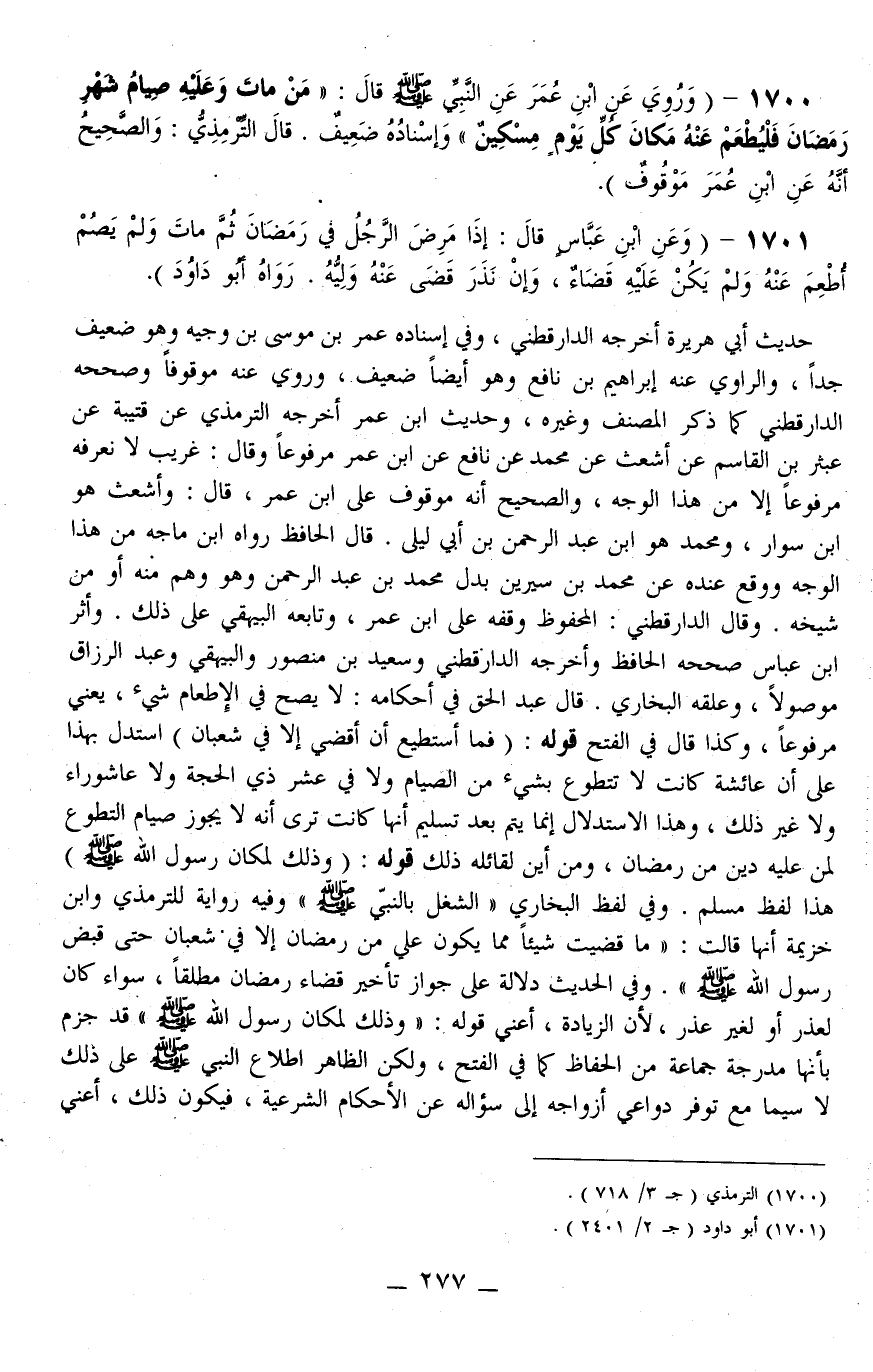 ١٧٠٠ - ( وَرُوِيَ عَنِ ابْنِ عُمَرَ عَنِ النَّبِيِّ ﷺ قالَ : « مَنْ ماتَ وَعَلَيْهِ صِيامُ شَهْرِ
رَمَضَانَ فَلْيُطْعَمْ عَنْهُ مَكانَ كُلِّ يَوْمٍ مِسْكِينٌ » وَإسْنادُهُ ضَعِيفٌ . قالَ التِّرْمِذِيُّ : وَالصَّحِيحُ
أنَّهُ عَنِ ابْنِ عُمَرَ مَوْقُوفٌ ).
١٧٠١ - ( وَعَنِ ابْنِ عَبَّاسٍ قالَ : إذَا مَرِضَ الرَّجُلُ في رَمَضَانَ ثُمَّ ماتَ وَلمْ يَصُمْ
أُطْعِمَ عَنْهُ وَلمْ يَكُنْ عَلَيْهِ قَضَاءٌ ، وَإنْ نَذَرَ قَضَى عَنْهُ وَلِيُّهُ . رَوَاهُ أبُو دَاوُدَ ).
حديث أبي هريرة أخرجه الدارقطني ، وفي إسناده عمر بن موسى بن وجيه وهو ضعيف
جداً ، والراوي عنه إبراهيم بن نافع وهو أيضاً ضعيف ، وروي عنه موقوفاً وصححه
الدارقطني كما ذكر المصنف وغيره ، وحديث ابن عمر أخرجه الترمذي عن قتيبة عن
عبثر بن القاسم عن أشعث عن محمد عن نافع عن ابن عمر مرفوعاً وقال : غريب لا نعرفه
مرفوعاً إلا من هذا الوجه ، والصحيح أنه موقوف على ابن عمر ، قال : وأشعث هو
ابن سوار ، ومحمد هو ابن عبد الرحمن بن أبي ليلى . قال الحافظ رواه ابن ماجه من هذا
الوجه ووقع عنده عن محمد بن سيرين بدل محمد بن عبد الرحمن وهو وهم منه أو من
شيخه . وقال الدارقطني : المحفوظ وقفه على ابن عمر ، وتابعه البيهقي على ذلك . وأثر
ابن عباس صححه الحافظ وأخرجه الدارقطني وسعيد بن منصور والبيهقي وعبد الرزاق
موصولاً ، وعلقه البخاري . قال عبد الحق في أحكامه : لا يصح في الإطعام شيء ، يعني
مرفوعاً ، وكذا قال في الفتح قوله : ( فما أستطيع أن أقضي إلا في شعبان ) استدل بهذا
على أن عائشة كانت لا تتطوع بشيء من الصيام ولا في عشر ذي الحجة ولا عاشوراء
ولا غير ذلك ، وهذا الاستدلال إنما يتم بعد تسليم أنها كانت ترى أنه لا يجوز صيام التطوع
لمن عليه دين من رمضان ، ومن أين لقائله ذلك قوله : ( وذلك لمكان رسول الله ﷺ )
هذا لفظ مسلم . وفي لفظ البخاري « الشغل بالنبيّ ﷺ » وفيه رواية للترمذي وابن
خزيمة أنها قالت : « ما قضيت شيئاً مما يكون علي من رمضان إلا في شعبان حتى قبض
رسول الله ﷺ » . وفي الحديث دلالة على جواز تأخير قضاء رمضان مطلقاً ، سواء كان
لعذر أو لغير عذر ، لأن الزيادة ، أعني قوله : « وذلك لمكان رسول الله ﷺ » قد جزم
بأنها مدرجة جماعة من الحفاظ كما في الفتح ، ولكن الظاهر اطلاع النبي ﷺ على ذلك
لا سيما مع توفر دواعي أزواجه إلى سؤاله عن الأحكام الشرعية ، فيكون ذلك ، أعني
(١٧٠٠) الترمذي ( جـ ٣/ ٧١٨ ) .
(١٧٠١) أبو داود ( جـ ٢/ ٢٤٠١ ) .
ــ ٢٧٧ ــ